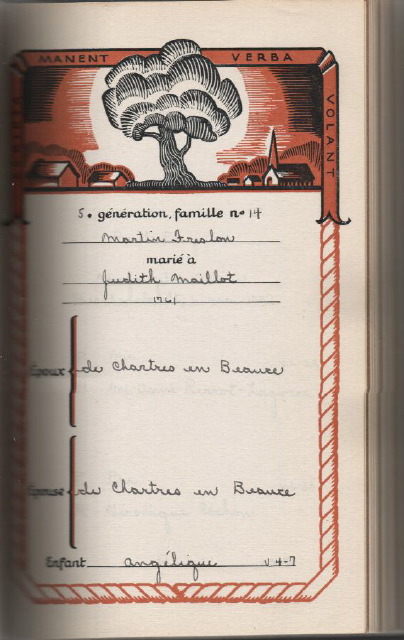 MANENT VERBA
VOLANT
5. génération, famille nº 14
Martin Freslon
marié à
Judith Maillot
1761
Époux de Chartres en Beauce
Épouse de Chartres en Beauce
Enfant angélique V 4-7